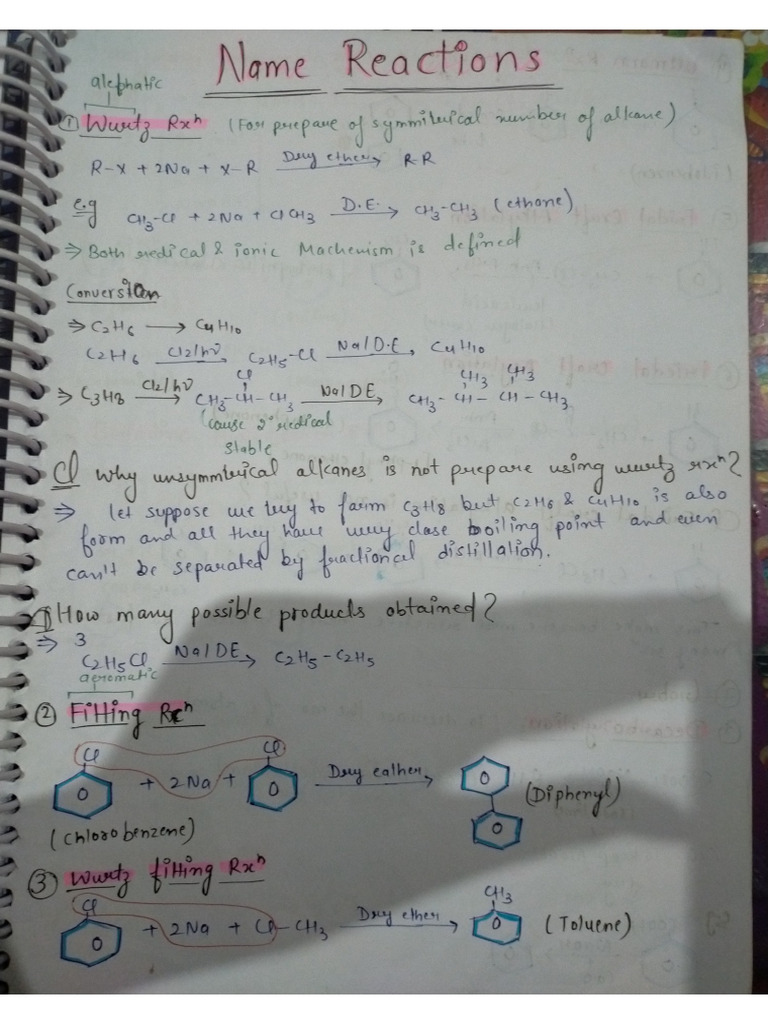 Name Reactions
alephatic
① Wurtz Rxⁿ (For prepare of symmitrical number of alkane)
R-X + 2Na + X-R Dry ether→ R-R
e.g CH₃-Cl + 2Na + ClCH₃ D.E.→ CH₃-CH₃ (ethane)
⇒ Both redical & ionic Machenism is defined
Conversion
⇒ C₂H₆ → C₄H₁₀
C₂H₆ Cl₂/hν→ C₂H₅-Cl Na/D.E→ C₄H₁₀
Cl CH₃ CH₃
⇒ C₃H₈ Cl₂/hν→ CH₃-CH-CH₃ Na/DE→ CH₃-CH-CH-CH₃
(cause 2° redical
stable
Q Why unsymmtrical alkanes is not prepare using wurtz rxⁿ?
⇒ let suppose we try to farm C₃H₈ but C₂H₆ & C₄H₁₀ is also
form and all they have very close boiling point and even
can't be separated by fractional distillation.
Q How many possible products obtained?
⇒ 3
C₂H₅Cl Na/DE→ C₂H₅-C₂H₅
aeromatic
② Fitting Rxⁿ
Cl Cl
+ 2Na + Dry eather→ (Diphenyl)
(Chlorobenzene)
③ Wurtz fitting Rxⁿ
Cl CH₃
+ 2Na + Cl-CH₃ Dry ether→ (Toluene)